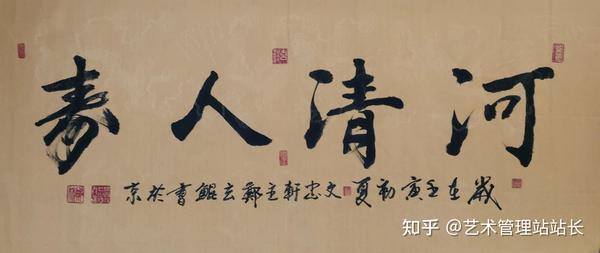 河清人寿
歲在壬寅初夏文忠軒主鄭玄鯤書於京
知乎 @艺术管理站站长